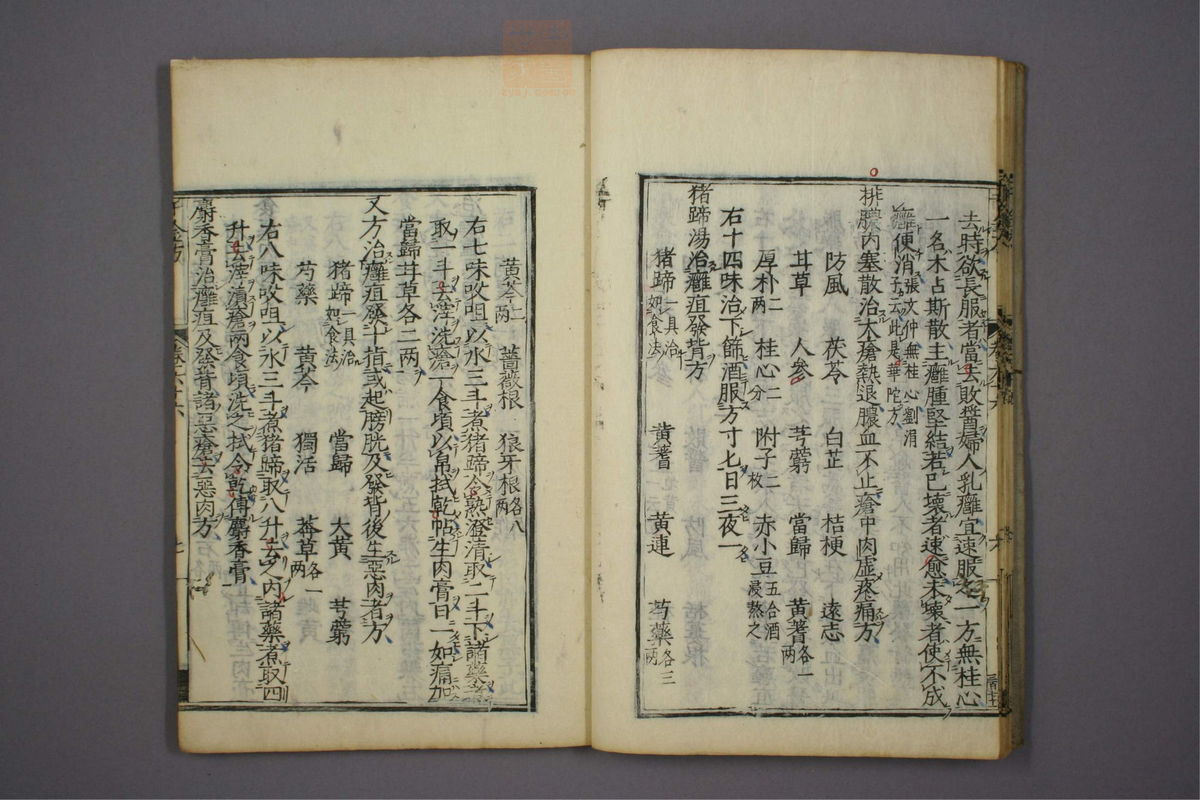 去時欲長服者當去敗醬婦人乳癰宜速服之一方無桂心
一名木占斯散主癰腫堅結若已壞者速愈未壞者使不成
癰便消張文仲無桂心劉涓子云此是華陀方
排膿內塞散治大瘡熱退膿血不止瘡中肉虛疼痛方
防風 茯苓 白芷 桔梗 遠志
甘草 人參 芎藭 當歸 黃蓍各一兩
厚朴二兩 桂心二分 附子二枚 赤小豆五合酒浸熬之
右十四味治下篩酒服方寸匕日三夜一
猪蹄湯治癰疽發背方
猪蹄一具治如食法 黃蓍 黃連 芍藥各三兩
黃芩二兩 薔薇根 狼牙根各八兩
右七味㕮咀以水三斗煮猪蹄令熟澄清取二斗下諸藥
取一斗去滓洗瘡一食頃以帛拭乾帖生肉膏日二如痛加
當歸甘草各二兩
又方治癰疽發十指或起膀胱及發背後生惡肉者方
猪蹄一具治如食法 當歸 大黃 芎藭
芍藥 黃芩 獨活 莽草各一兩
右八味㕮咀以水三斗煮猪蹄取八升去之內諸藥煮取四
升去滓漬瘡兩食頃洗之拭令乾傅麝香膏
麝香膏治癰疽及發背諸惡瘡去惡肉方